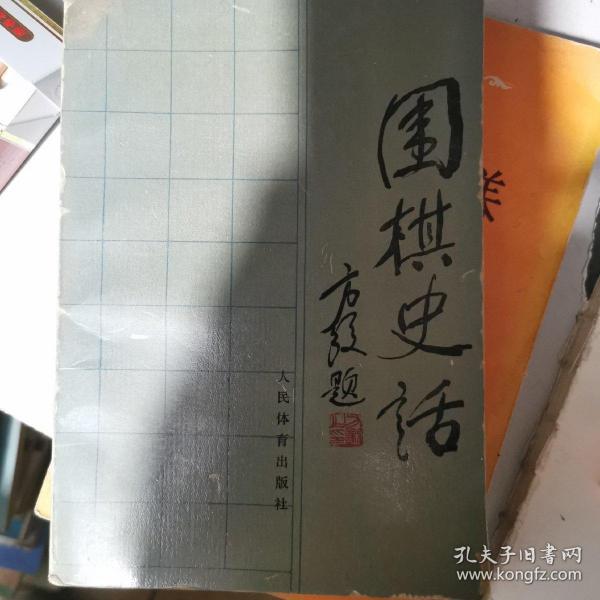 围棋史话
方毅题
人民体育出版社
孔夫子旧书网
www.kongfz.com